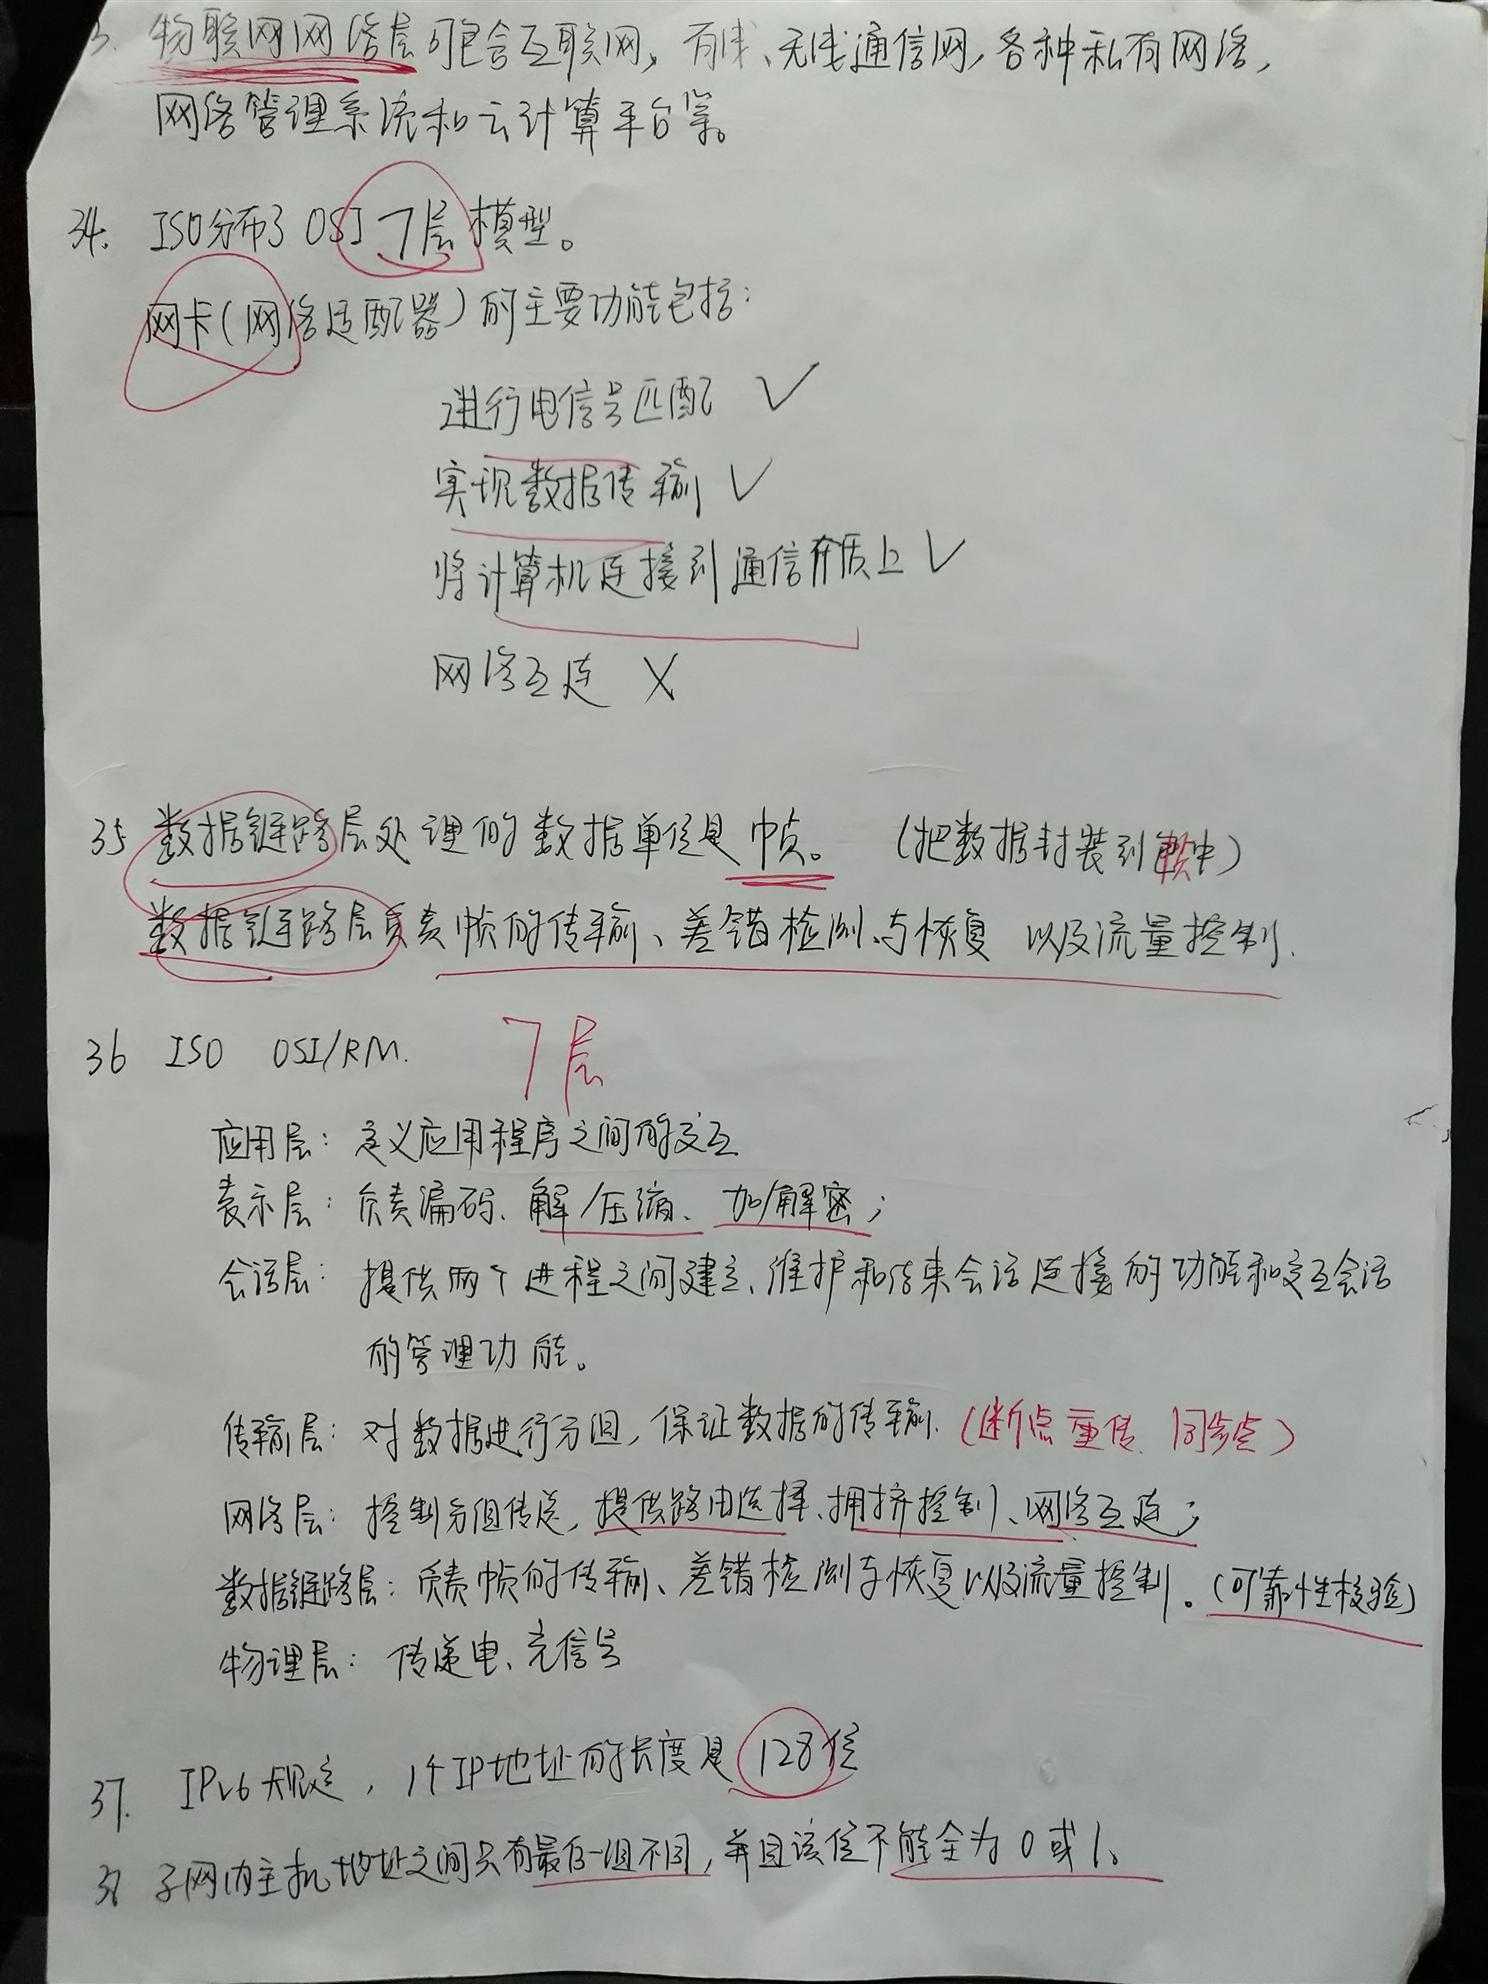 3. 物联网网络层可包含互联网,有线、无线通信网,各种私有网络,
网络管理系统和云计算平台等。
34. ISO分布了OSI 7层模型。
网卡(网络适配器)的主要功能包括:
进行电信号匹配 ✓
实现数据传输 ✓
将计算机连接到通信介质上 ✓
网络互连 ×
35 数据链路层处理的数据单位是帧。 (把数据封装到帧中)
数据链路层负责帧的传输、差错检测与恢复以及流量控制.
36 ISO OSI/RM. 7层
应用层: 定义应用程序之间的交互
表示层: 负责编码、解/压缩、加/解密;
会话层: 提供两个进程之间建立、维护和结束会话连接的功能和交互会话
的管理功能。
传输层: 对数据进行分组,保证数据的传输.(断点重传、同步点)
网络层: 控制分组传送,提供路由选择、拥挤控制、网络互连;
数据链路层: 负责帧的传输、差错检测与恢复以及流量控制。(可靠性校验)
物理层: 传递电、光信号
37. IPv6规定,1个IP地址的长度是128位
38 子网内主机地址之间只有最后一组不同,并且该位不能全为0或1。